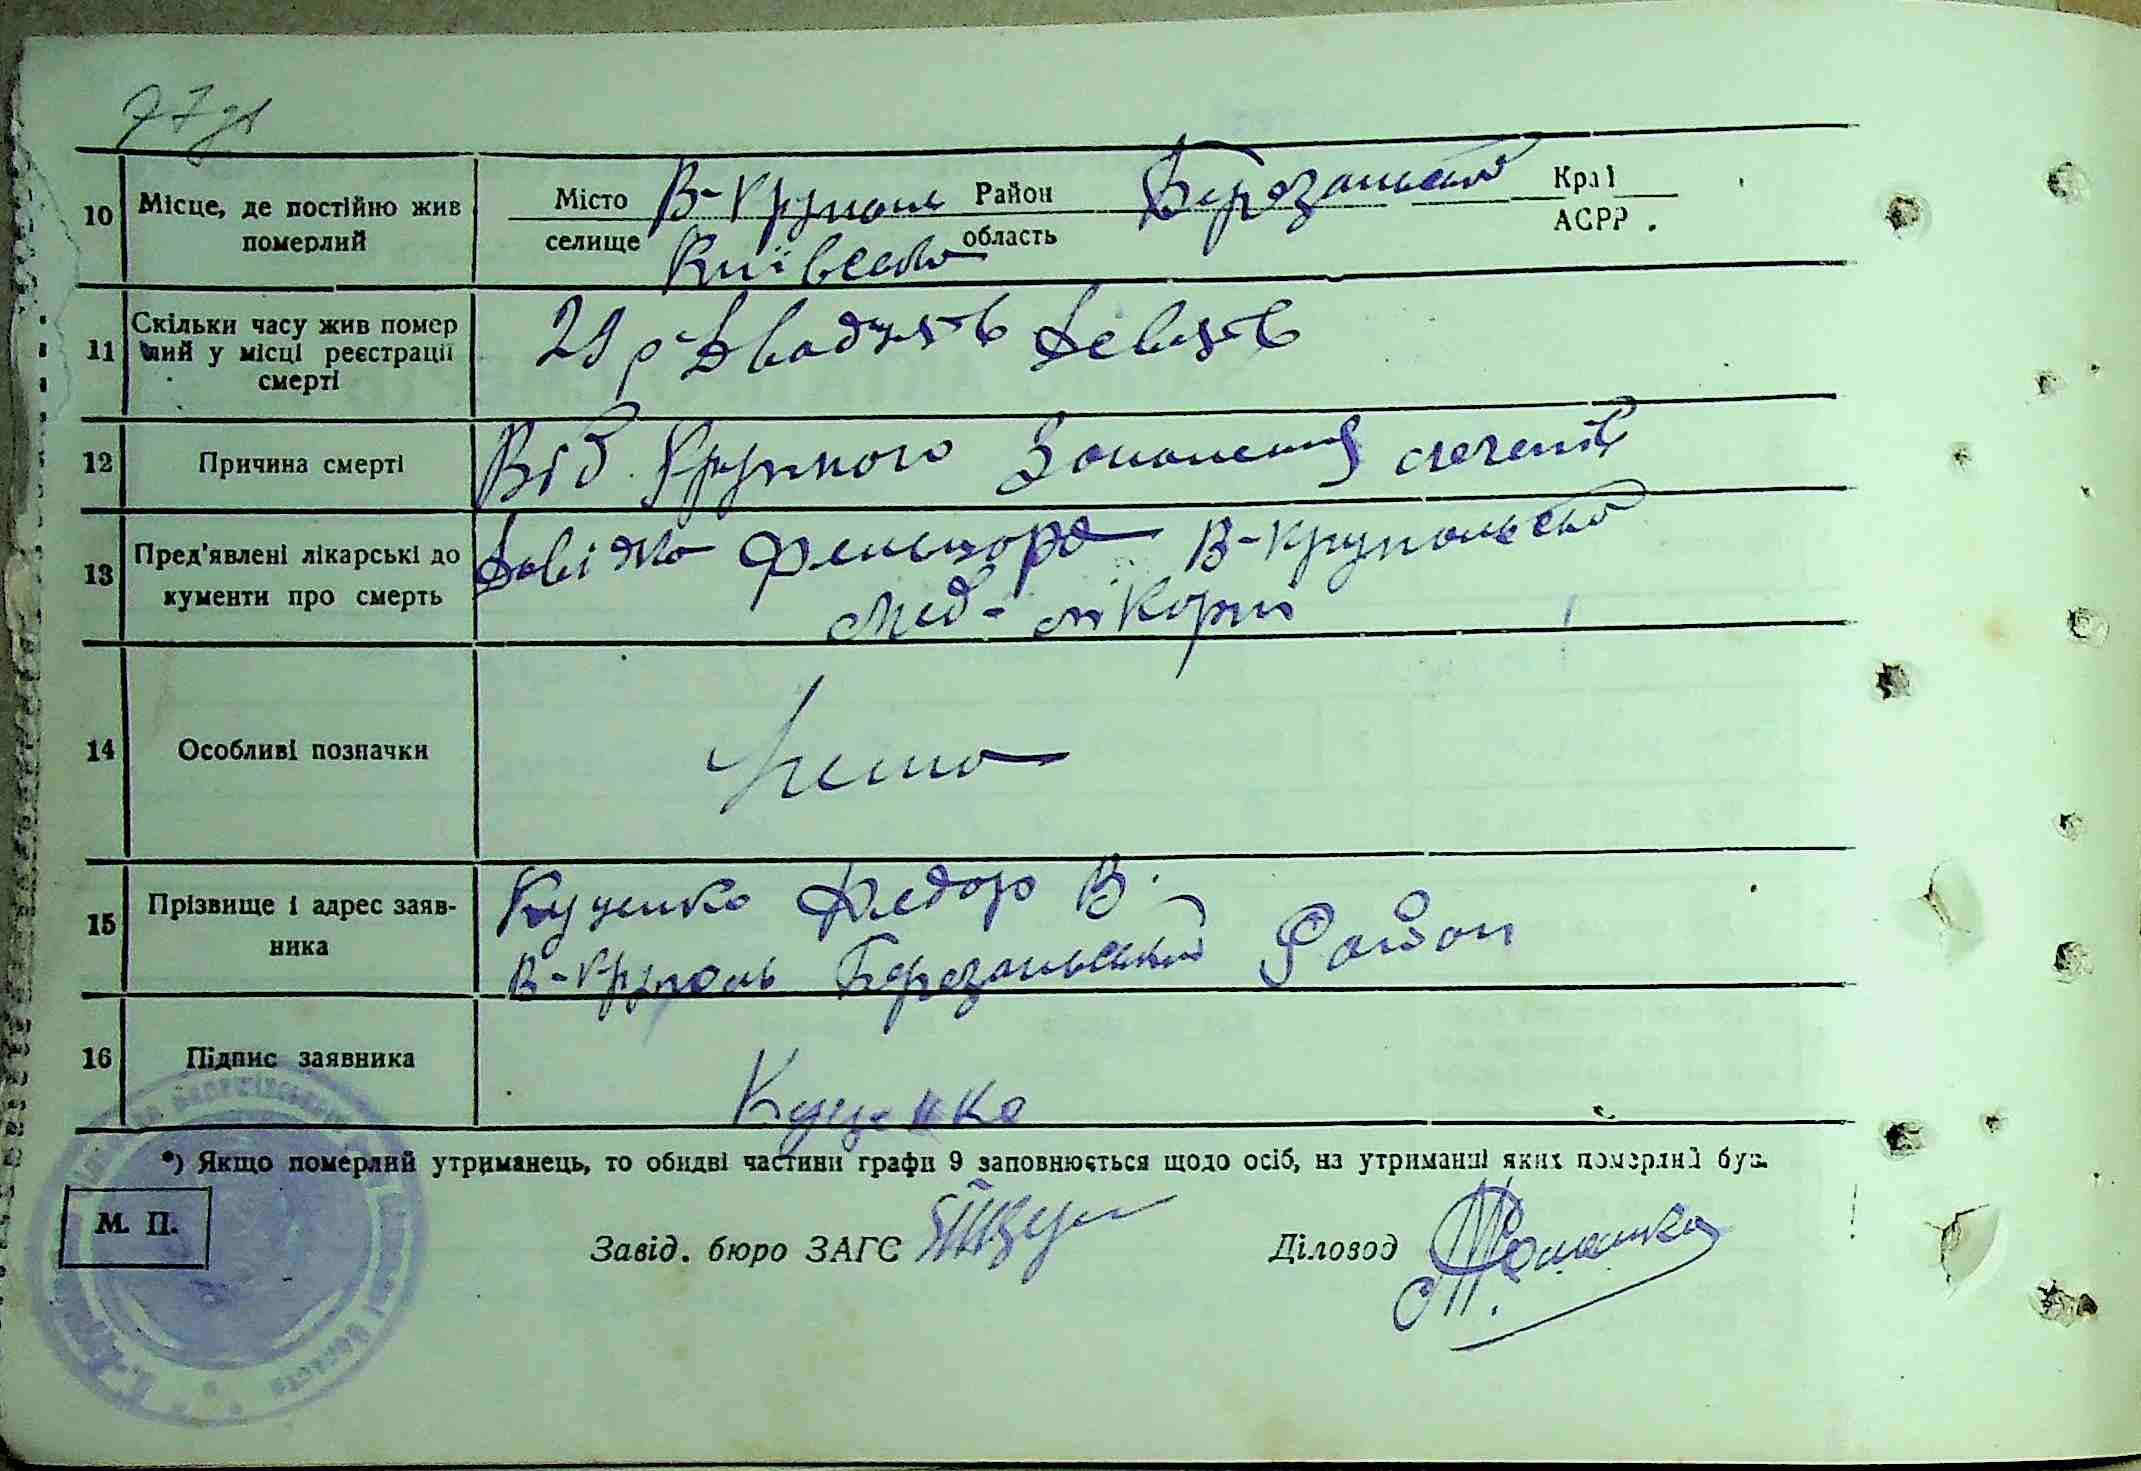 77 зв
10 Місце, де постійно жив померлий
Місто В-Круполь Район Березанський Краї
селище Київська область АСРР.
11 Скільки часу жив помер лий у місці реєстрації смерті
29 р Двадцять Девять
12 Причина смерті
Від Крупного Запалення легенів
13 Пред'явлені лікарські до кументи про смерть
Довідка Фельшора В-Крупольської
Мед- лікарні
14 Особливі позначки
Нема
15 Прізвище і адрес заяв- ника
Куценко Федор В.
В-Круполь Березанський Район
16 Підпис заявника
Куценко
*) Якщо померлий утриманець, то обидві частини графи 9 заповнюється щодо осіб, на утриманні яких померлий був.
М. П.
Завід. бюро ЗАГС
Діловод